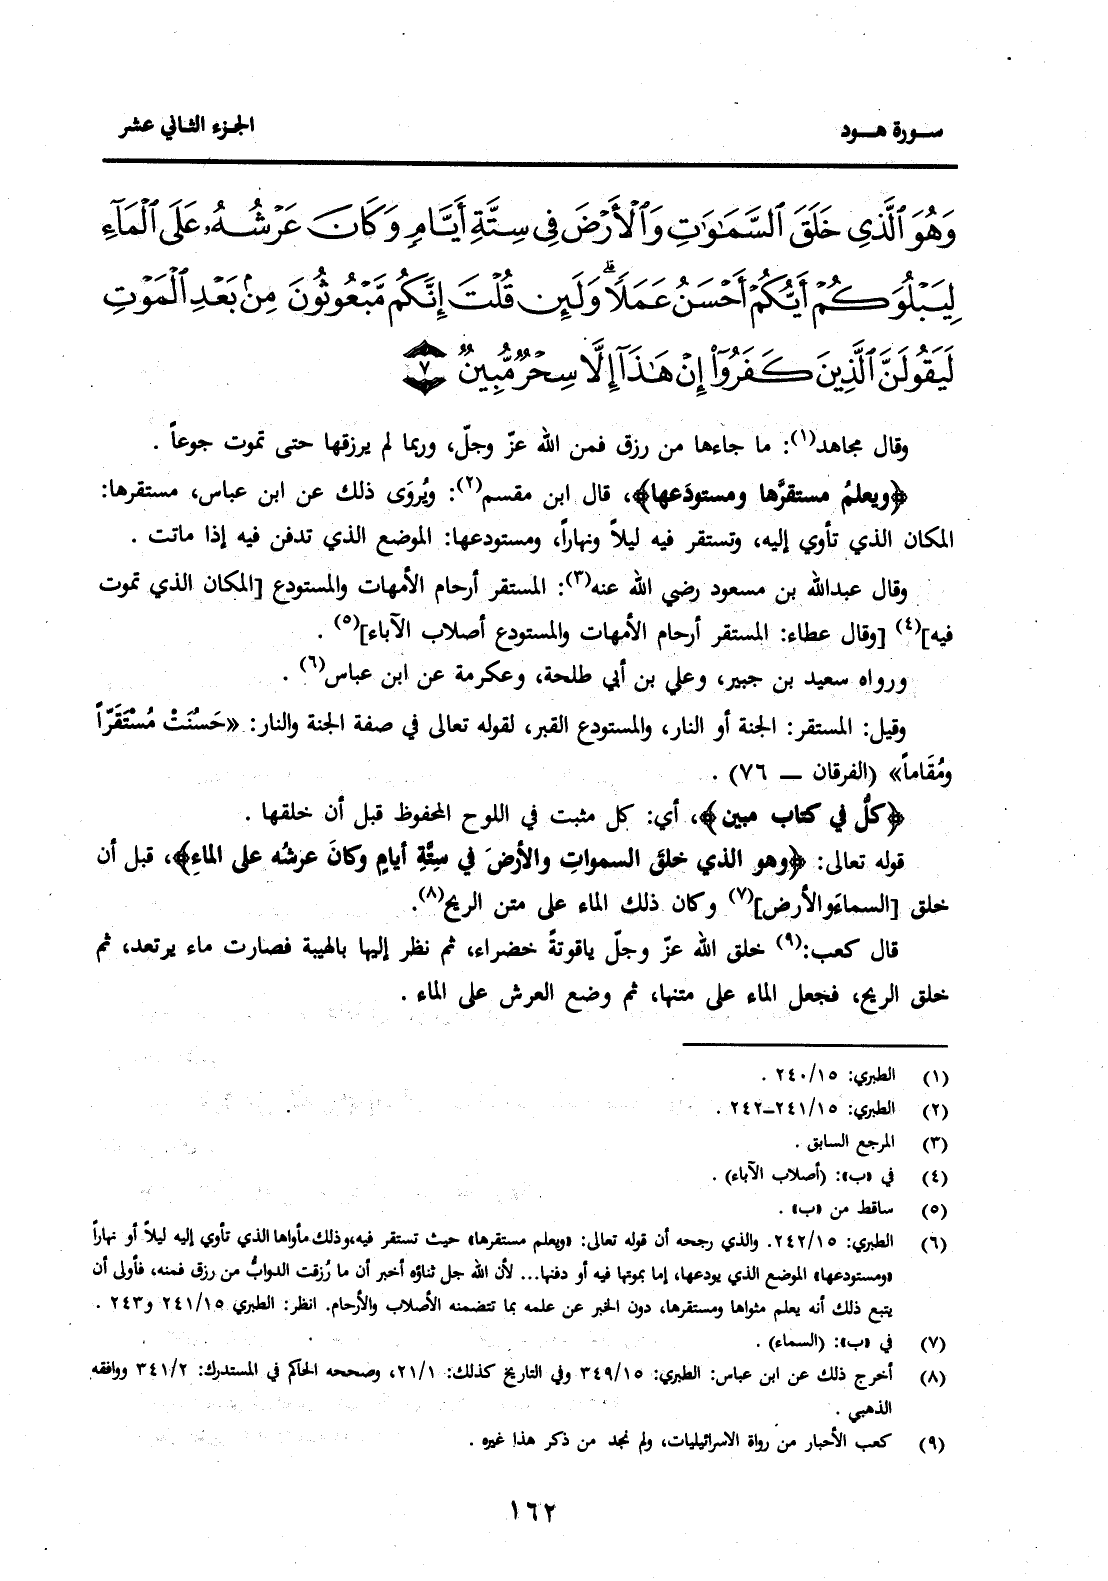 سورة هود
الجزء الثاني عشر
وَهُوَ ٱلَّذِى خَلَقَ ٱلسَّمَٰوَٰتِ وَٱلْأَرْضَ فِى سِتَّةِ أَيَّامٍ وَكَانَ عَرْشُهُۥ عَلَى ٱلْمَآءِ
لِيَبْلُوَكُمْ أَيُّكُمْ أَحْسَنُ عَمَلًا ۗ وَلَئِن قُلْتَ إِنَّكُم مَّبْعُوثُونَ مِنۢ بَعْدِ ٱلْمَوْتِ
لَيَقُولَنَّ ٱلَّذِينَ كَفَرُوٓا۟ إِنْ هَٰذَآ إِلَّا سِحْرٌ مُّبِينٌ ٧
وقال مجاهد(١): ما جاءها من رزق فمن الله عزّ وجلّ، وربما لم يرزقها حتى تموت جوعاً .
﴿ويعلمُ مستقرَّها ومستودَعها﴾، قال ابن مقسم(٢): ويُروَى ذلك عن ابن عباس، مستقرها:
المكان الذي تأوي إليه، وتستقر فيه ليلاً ونهاراً، ومستودعها: الموضع الذي تدفن فيه إذا ماتت .
وقال عبدالله بن مسعود رضي الله عنه(٣): المستقر أرحام الأمهات والمستودع [المكان الذي تموت
فيه](٤) [وقال عطاء: المستقر أرحام الأمهات والمستودع أصلاب الآباء](٥) .
ورواه سعيد بن جبير، وعلي بن أبي طلحة، وعكرمة عن ابن عباس(٦) .
وقيل: المستقر: الجنة أو النار، والمستودع القبر، لقوله تعالى في صفة الجنة والنار: «حَسُنَتْ مُسْتَقَرّاً
ومُقَاماً» (الفرقان — ٧٦) .
﴿كلٌّ في كتاب مبين﴾، أي: كل مثبت في اللوح المحفوظ قبل أن خلقها .
قوله تعالى: ﴿وهو الذي خلقَ السمواتِ والأرضَ في سِتَّةِ أيامٍ وكانَ عرشُه على الماءِ﴾، قبل أن
خلق [السماءَوالأرض](٧) وكان ذلك الماء على متن الريح(٨).
قال كعب:(٩) خلق الله عزّ وجلّ ياقوتةً خضراء، ثم نظر إليها بالهيبة فصارت ماء يرتعد، ثم
خلق الريح، فجعل الماء على متنها، ثم وضع العرش على الماء .
(١) الطبري: ٢٤٠/١٥ .
(٢) الطبري: ٢٤١/١٥–٢٤٢ .
(٣) المرجع السابق .
(٤) في «ب»: (أصلاب الآباء) .
(٥) ساقط من «ب» .
(٦) الطبري: ٢٤٢/١٥. والذي رجحه أن قوله تعالى: «ويعلم مستقرها» حيث تستقر فيه،وذلك مأواها الذي تأوي إليه ليلاً أو نهاراً
«ومستودعها» الموضع الذي يودعها، إما بموتها فيه أو دفنها... لأن الله جل ثناؤه أخبر أن ما رُزقت الدوابُّ من رزق فمنه، فأولى أن
يتبع ذلك أنه يعلم مثواها ومستقرها، دون الخبر عن علمه بما تتضمنه الأصلاب والأرحام. انظر: الطبري ٢٤١/١٥ و٢٤٣ .
(٧) في «ب»: (السماء) .
(٨) أخرج ذلك عن ابن عباس: الطبري: ٣٤٩/١٥ وفي التاريخ كذلك: ٢١/١، وصححه الحاكم في المستدرك: ٣٤١/٢ ووافقه
الذهبي .
(٩) كعب الأحبار من رواة الاسرائيليات، ولم نجد من ذكر هذا غيره .
١٦٢